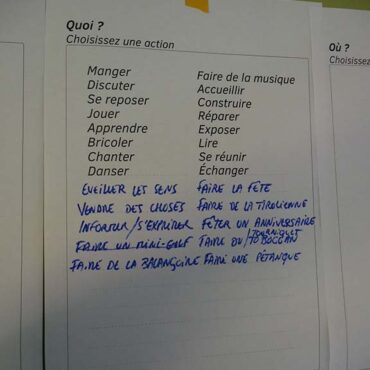 Quoi ?
Choisissez une action
Manger
Discuter
Se reposer
Jouer
Apprendre
Bricoler
Chanter
Danser
Faire de la musique
Accueillir
Construire
Réparer
Exposer
Lire
Se réunir
Échanger
EVEILLER LES SENS
FAIRE LA FÊTE
VENDRE DES CHOSES
FAIRE DE LA TIROLIENNE
INFORMER/S'EXPRIMER
FÊTER UN ANNIVERSAIRE
FAIRE UN MINI-GOLF
FAIRE DU /TOURNIQUET
TOBOGGAN
FAIRE DE LA BALANÇOIRE
FAIRE UNE PÉTANQUE
Où ?
Choisissez